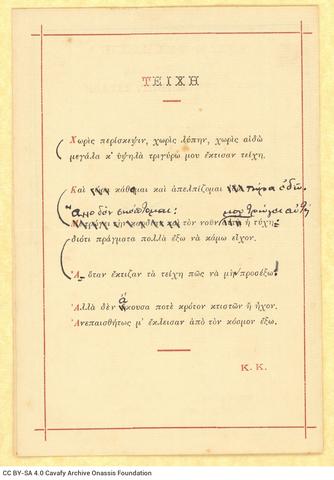 ΤΕΙΧΗ
Χωρὶς περίσκεψιν, χωρὶς λύπην, χωρὶς αἰδὼ
μεγάλα κ' ὑψηλὰ τριγύρω μου ἔκτισαν τείχη.
Καὶ κάθομαι καὶ ἀπελπίζομαι τώρα ἐδῶ.
Ἄλλο δὲν σκέπτομαι: τὸν νοῦν μου τρώγει αὐτὴ ἡ τύχη·
διότι πράγματα πολλὰ ἔξω νὰ κάμω εἶχον.
Ἀ ὅταν ἔκτιζαν τὰ τείχη πῶς νὰ μὴ προσέξω!
Ἀλλὰ δὲν ἄκουσα ποτὲ κρότον κτιστῶν ἢ ἦχον.
Ἀνεπαισθήτως μ' ἔκλεισαν ἀπὸ τὸν κόσμον ἔξω.
Κ. Κ.
CC BY-SA 4.0 Cavafy Archive Onassis Foundation